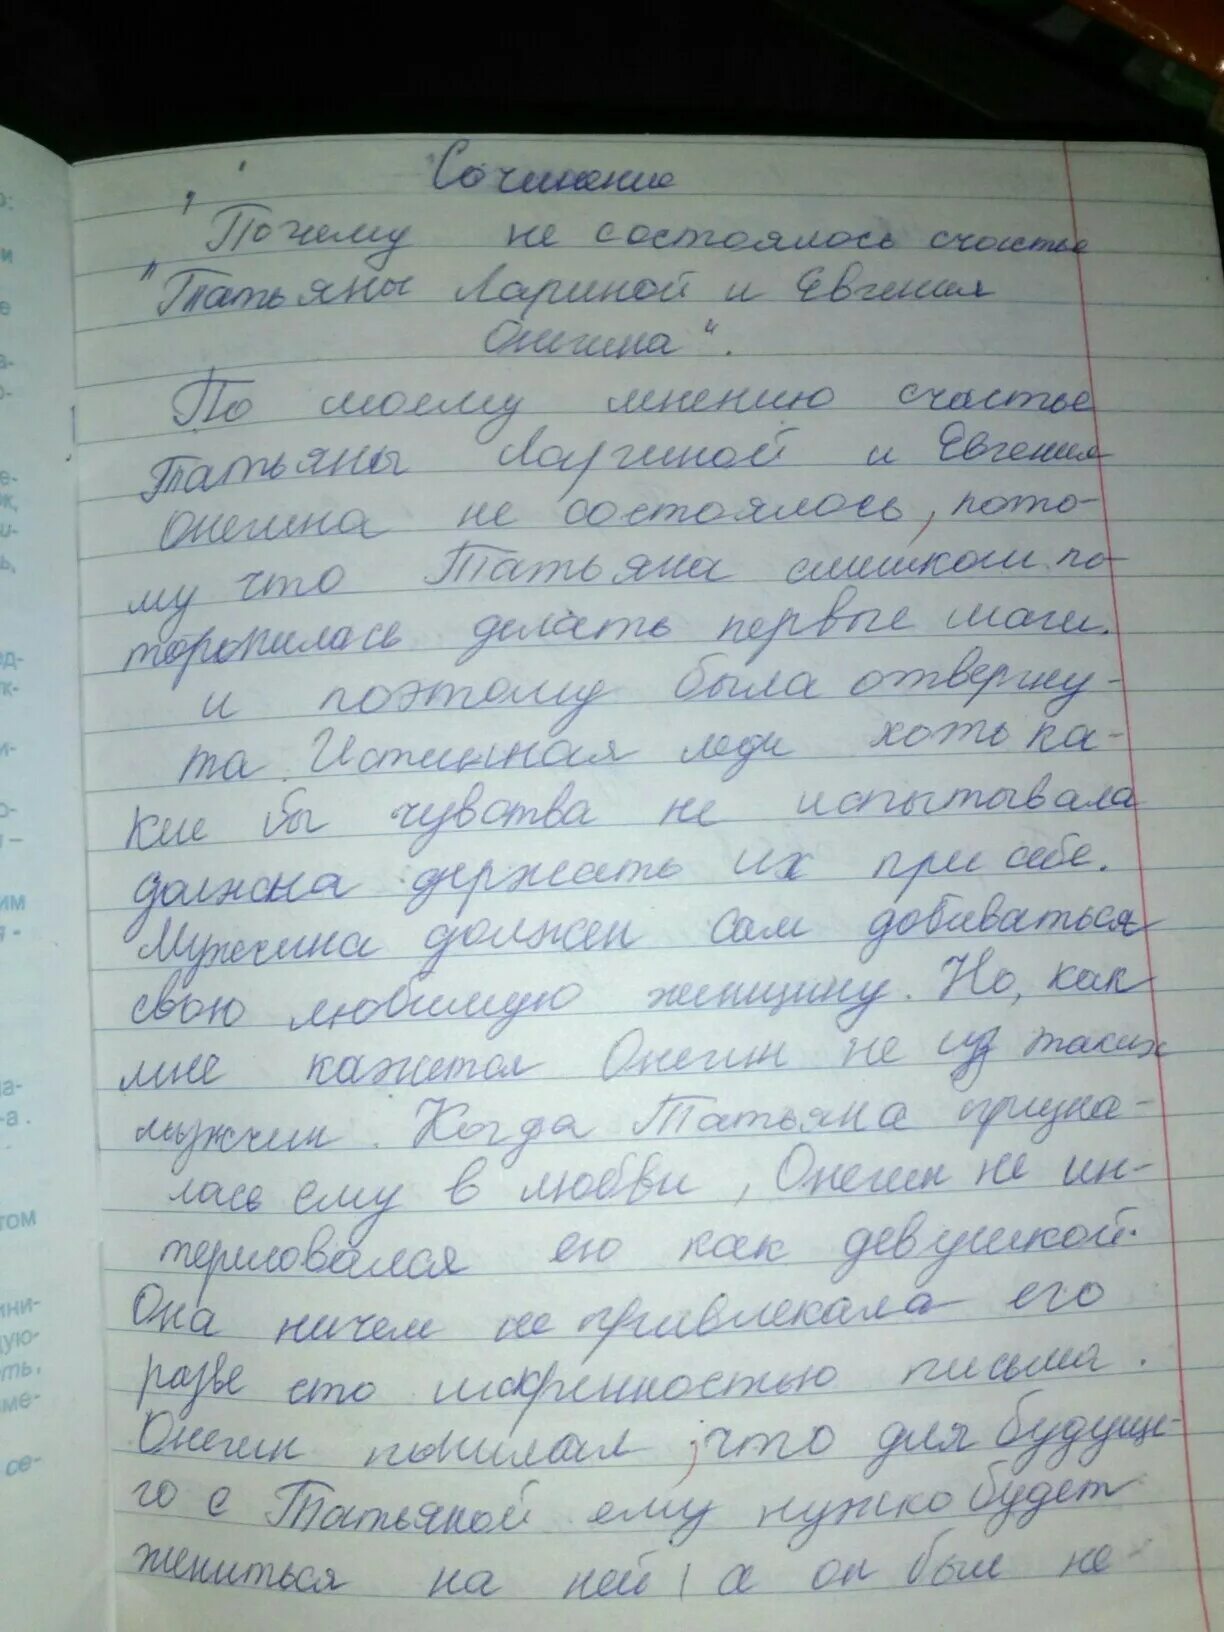 Сочинение
"Почему не состоялось счастье
"Татьяны Лариной и Евгения
Онегина".
По моему мнению счастье
Татьяны Лариной и Евгения
Онегина не состоялось, пото-
му что Татьяна слишком по-
торопилась делать первые шаги.
и поэтому была отвергну-
та. Истинная леди хоть ка-
кие бы чувства не испытывала
должна держать их при себе.
Мужчина должен сам добиваться
свою любимую женщину. Но, как
мне кажется Онегин не из таких
мужчин. Когда Татьяна призна-
лась ему в любви, Онегин не ин-
тересовался ею как девушкой.
Она ничем не привлекала его
разве сто искренностью письма.
Онегин понимал, что для будуще-
го с Татьяной ему нужно будет
жениться на ней, а он был не
о:
и
е
а-
о-
е-
ж,
и-
ь,
ед-
ж-
и-
о-
и –
им
я -
а-
-а.
том
ини-
дую-
оть.
ме-
се-